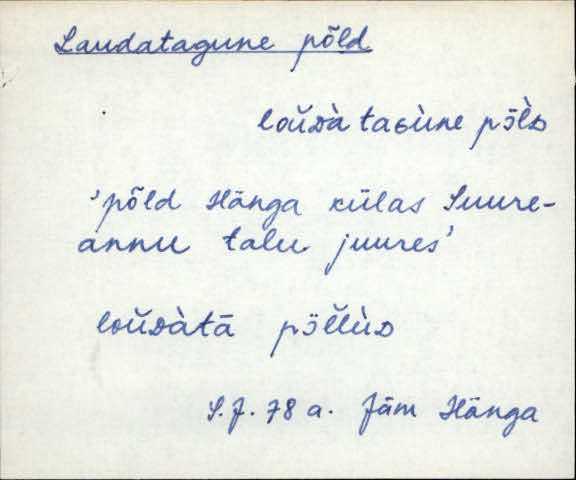 Laudatagune põld
loŭᴅὰ taɢὺne pȭl̀ᴅ
'põld Hänga külas Suure-
annu talu juures'
loŭᴅὰtā pɔ̈̆llὺᴅ
S.J. 78 a. Jäm Hänga